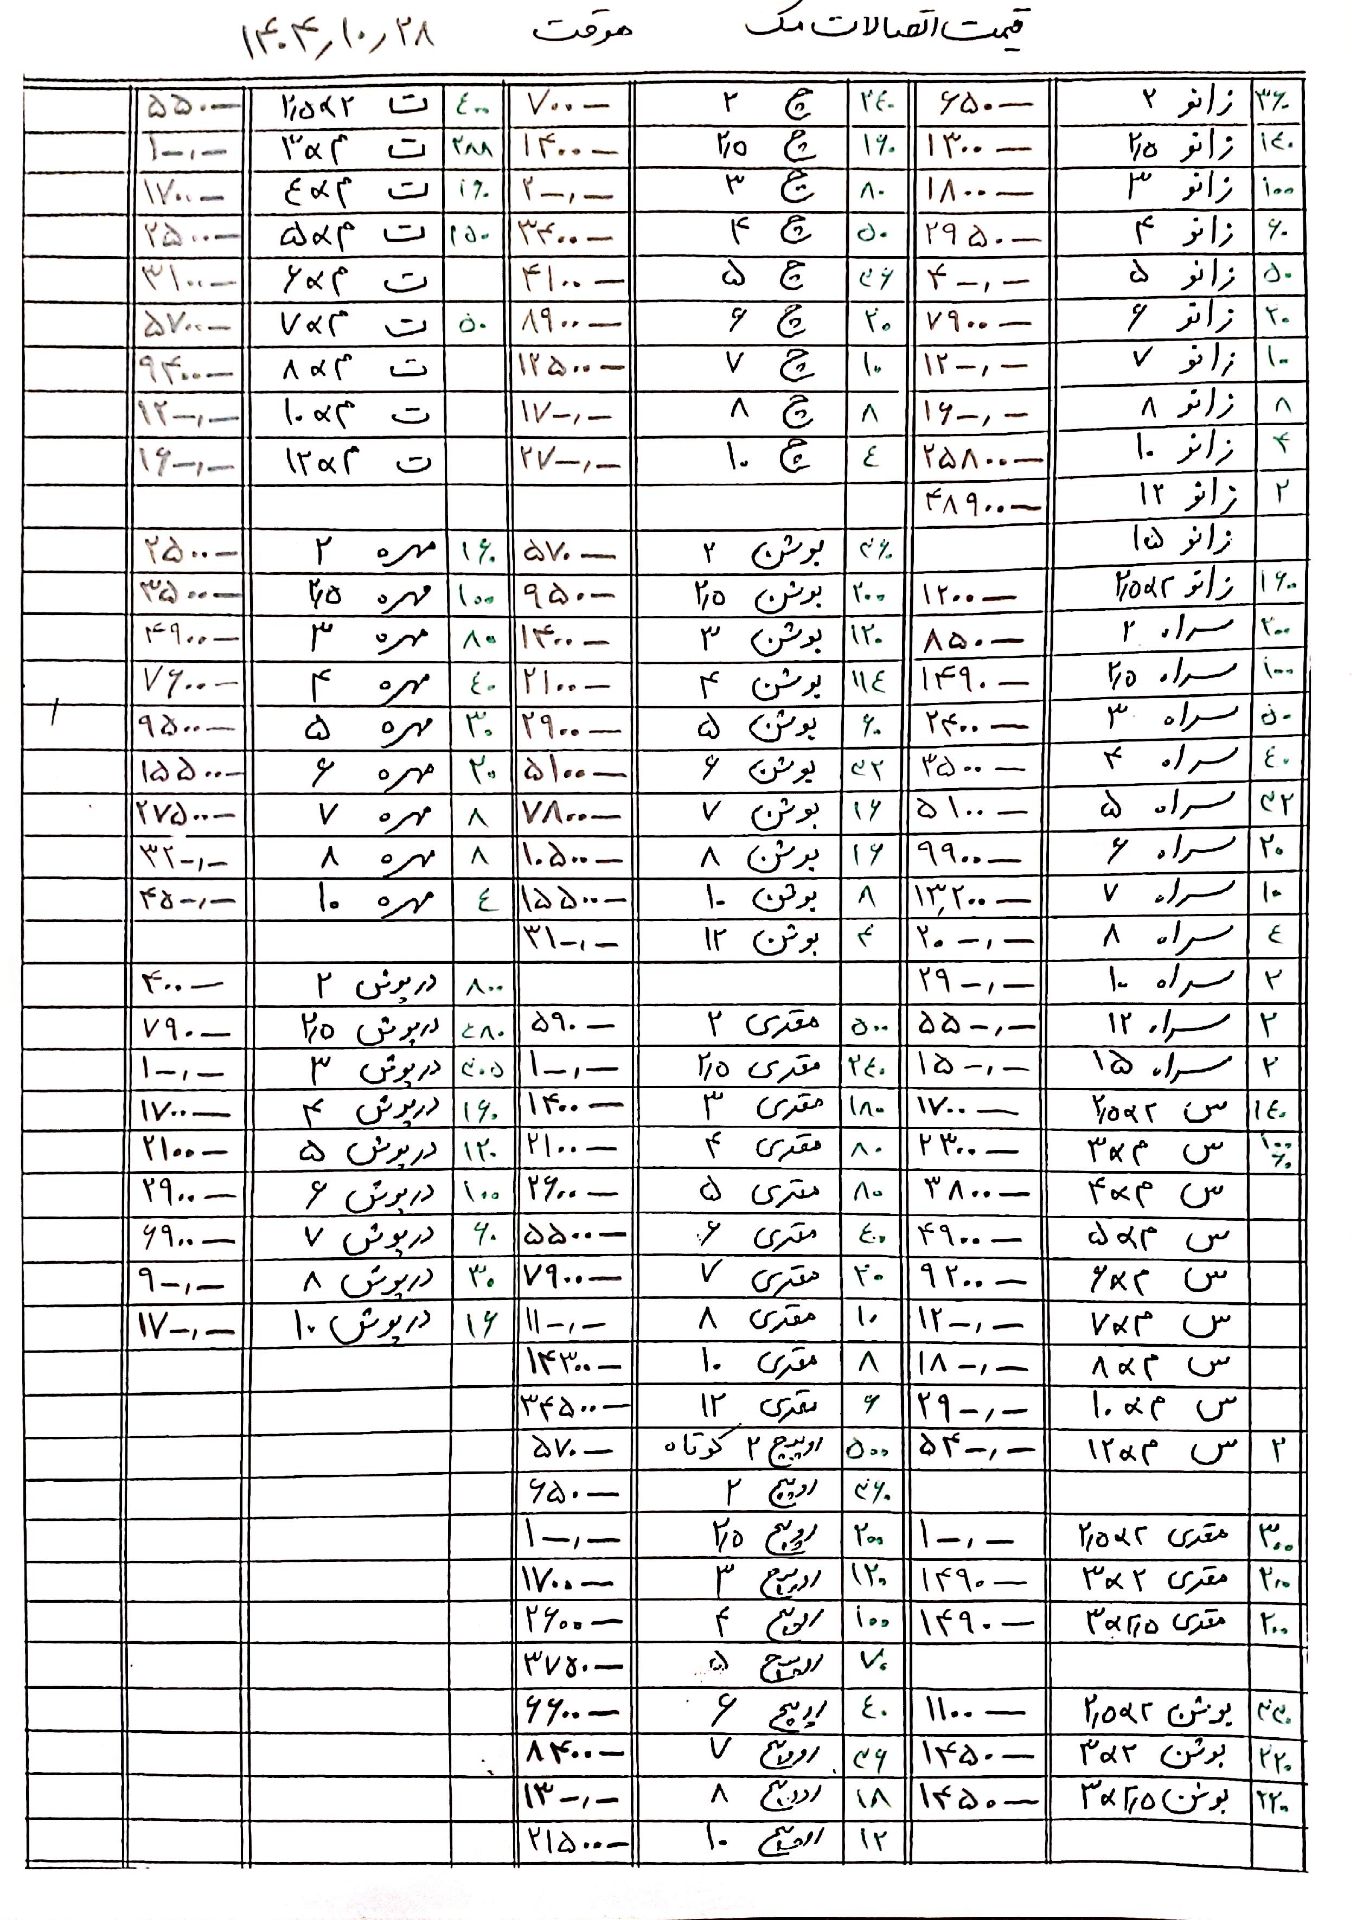 قیمت اتصالات مک موقت ۱۴۰۴٫۱۰٫۲۸
۳۶۰ زانو ۲ ۶۵۰— ۲۴۰ چ ۲ ۷۰۰— ۴۰۰ ت ۲٫۵×۲ ۵۵۰—
۱۴۰ زانو ۲٫۵ ۱۳۰۰— ۱۶۰ چ ۲٫۵ ۱۴۰۰— ۲۸۸ ت م×۳ ۱—٫—
۱۰۰ زانو ۳ ۱۸۰۰— ۸۰ چ ۳ ۲—٫— ۱۶۰ ت م×۴ ۱۷۰۰—
۶۰ زانو ۴ ۲۹۵۰— ۵۰ چ ۴ ۳۴۰۰— ۲۵۰ ت م×۵ ۲۵۰۰—
۵۰ زانو ۵ ۴—٫— ۳۶ چ ۵ ۴۱۰۰— ت م×۶ ۳۱۰۰—
۲۰ زانو ۶ ۷۹۰۰— ۲۰ چ ۶ ۸۹۰۰— ۵۰ ت م×۷ ۵۷۰۰—
۱۰ زانو ۷ ۱۲—٫— ۱۰ چ ۷ ۱۲۵۰۰— ت م×۸ ۹۴۰۰—
۸ زانو ۸ ۱۶—٫— ۸ چ ۸ ۱۷—٫— ت م×۱۰ ۱۲—٫—
۴ زانو ۱۰ ۲۵۸۰۰— ۴ چ ۱۰ ۲۷—٫— ت م×۱۲ ۱۶—٫—
۲ زانو ۱۲ ۴۸۹۰۰—
زانو ۱۵ ۳۶۰ بوشن ۲ ۵۷۰— ۱۶۰ مهره ۲ ۲۵۰۰—
۱۶۰ زانو ۲٫۵×۲ ۱۲۰۰— ۲۰۰ بوشن ۲٫۵ ۹۵۰— ۱۰۰ مهره ۲٫۵ ۳۵۰۰—
۲۰۰ سراه ۲ ۸۵۰— ۱۲۰ بوشن ۳ ۱۴۰۰— ۸۰ مهره ۳ ۴۹۰۰—
۱۰۰ سراه ۲٫۵ ۱۴۹۰— ۱۱۴ بوشن ۴ ۲۱۰۰— ۴۰ مهره ۴ ۷۶۰۰—
۵۰ سراه ۳ ۲۴۰۰— ۶۰ بوشن ۵ ۲۹۰۰— ۳۰ مهره ۵ ۹۵۰۰—
۴۰ سراه ۴ ۳۵۰۰— ۳۲ بوشن ۶ ۵۱۰۰— ۲۰ مهره ۶ ۱۵۵۰۰—
۳۲ سراه ۵ ۵۱۰۰— ۱۶ بوشن ۷ ۷۸۰۰— ۸ مهره ۷ ۲۷۵۰۰—
۲۰ سراه ۶ ۹۹۰۰— ۱۶ بوشن ۸ ۱۰۵۰۰— ۸ مهره ۸ ۳۲—٫—
۱۰ سراه ۷ ۱۳٫۲۰۰— ۸ بوشن ۱۰ ۱۵۵۰۰— ۴ مهره ۱۰ ۴۵—٫—
۴ سراه ۸ ۲۰—٫— ۴ بوشن ۱۲ ۳۱—٫—
۲ سراه ۱۰ ۲۹—٫— ۸۰۰ درپوش ۲ ۴۰۰—
۲ سراه ۱۲ ۵۵—٫— ۵۰۰ مغزی ۲ ۵۹۰— ۴۸۰ درپوش ۲٫۵ ۷۹۰—
۲ سراه ۱۵ ۱۵۰—٫— ۲۴۰ مغزی ۲٫۵ ۱—٫— ۳۰۵ درپوش ۳ ۱—٫—
۱۴۰ س ۲٫۵×۲ ۱۷۰۰— ۱۸۰ مغزی ۳ ۱۴۰۰— ۱۶۰ درپوش ۴ ۱۷۰۰—
۱۰۰ ۶۰ س م×۳ ۲۳۰۰— ۸۰ مغزی ۴ ۲۱۰۰— ۱۲۰ درپوش ۵ ۲۱۰۰—
س م×۴ ۳۸۰۰— ۸۰ مغزی ۵ ۲۶۰۰— ۱۰۰ درپوش ۶ ۲۹۰۰—
س م×۵ ۴۹۰۰— ۴۰ مغزی ۶ ۵۵۰۰— ۶۰ درپوش ۷ ۶۹۰۰—
س م×۶ ۹۲۰۰— ۲۰ مغزی ۷ ۷۹۰۰— ۳۰ درپوش ۸ ۹—٫—
س م×۷ ۱۲—٫— ۱۰ مغزی ۸ ۱۱—٫— ۱۶ درپوش ۱۰ ۱۷—٫—
س م×۸ ۱۸—٫— ۸ مغزی ۱۰ ۱۴۳۰۰—
س م×۱۰ ۲۹—٫— ۶ مغزی ۱۲ ۳۴۵۰۰—
۲ س م×۱۲ ۵۴—٫— ۵۰۰ روپیچ ۲ کوتاه ۵۷۰—
۳۶۰ روپیچ ۲ ۶۵۰—
۳۰۰ مغزی ۲٫۵×۲ ۱—٫— ۲۰۰ روپیچ ۲٫۵ ۱—٫—
۲۰۰ مغزی ۳×۲ ۱۴۹۰— ۱۲۰ روپیچ ۳ ۱۷۰۰—
۲۰۰ مغزی ۳×۲٫۵ ۱۴۹۰— ۱۰۰ روپیچ ۴ ۲۶۰۰—
۷۰ روپیچ ۵ ۳۷۵۰—
بوشن ۲٫۵×۲ ۱۱۰۰— ۴۰ روپیچ ۶ ۶۶۰۰—
۲۲۰ بوشن ۳×۲ ۱۴۵۰— ۳۶ روپیچ ۷ ۸۴۰۰—
۲۲۰ بوشن ۳×۲٫۵ ۱۴۵۰— ۱۸ روپیچ ۸ ۱۳—٫—
۱۲ روپیچ ۱۰ ۲۱۵۰۰—